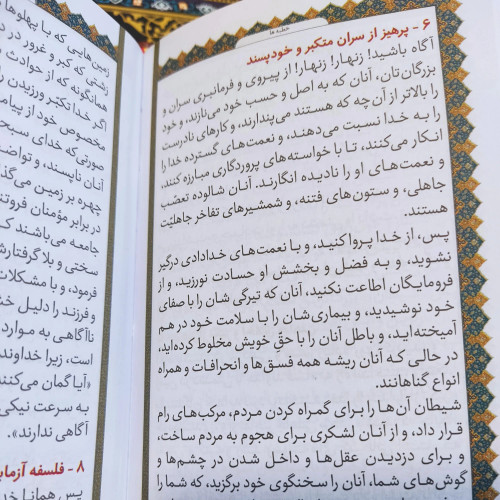 خطبه ها
۶ - پرهیز از سران متکبر و خودپسند
آگاه باشید! زنهار! زنهار! از پیروی و فرمانبری سران و
بزرگان‌تان، آنان که به اصل و حسب خود می‌نازند، و خود
را بالاتر از آن چه که هستند می‌پندارند، و کارهای نادرست
را به خدا نسبت می‌دهند، و نعمت‌های گسترده خدا را
انکار می‌کنند، تا با خواسته‌های پروردگاری مبارزه کنند،
و نعمت‌های او را نادیده انگارند. آنان شالوده تعصّب
جاهلی، و ستون‌های فتنه، و شمشیرهای تفاخر جاهلیّت
هستند.
پس، از خدا پروا کنید، و با نعمت‌های خدادادی درگیر
نشوید، و به فضل و بخشش او حسادت نورزید، و از
فرومایگان اطاعت نکنید، آنان که تیرگی شان را با صفای
خود نوشیدید، و بیماری‌شان را با سلامت خود در هم
آمیخته‌اید، و باطل آنان را با حقّ خویش مخلوط کرده‌اید،
در حالی که آنان ریشه همه فسق‌ها و انحرافات و همراه
انواع گناهانند.
شیطان آن‌ها را برای گمراه کردن مردم، مرکب‌های رام
قرار داد، و از آنان لشکری برای هجوم به مردم ساخت،
و برای دزدیدن عقل‌ها و داخل شدن در چشم‌ها و
گوش‌های شما، آنان را سخنگوی خود برگزید، که شما را
زمین‌هایی که با پهلوها
زشتی که کبر و غرور در د
همانگونه که از حوادث
اگر خدا تکبّر ورزیدن را
مخصوص خود از پیام
صورتی‌که خدای سبح
آنان ناپسند، و تواضع
چهره بر زمین می‌گذ
در برابر مؤمنان فروتن
جامعه می‌باشند ک
سختی و بلا گرفتارش
فرمود، و با مشکلات
و فرزند را دلیل خش
ناآگاهی به موارد
است، زیرا خداوند
«آیا گمان می‌کنند
به سرعت نیکی
آگاهی ندارند».
۸ - فلسفه آزمای
پس همانا خد